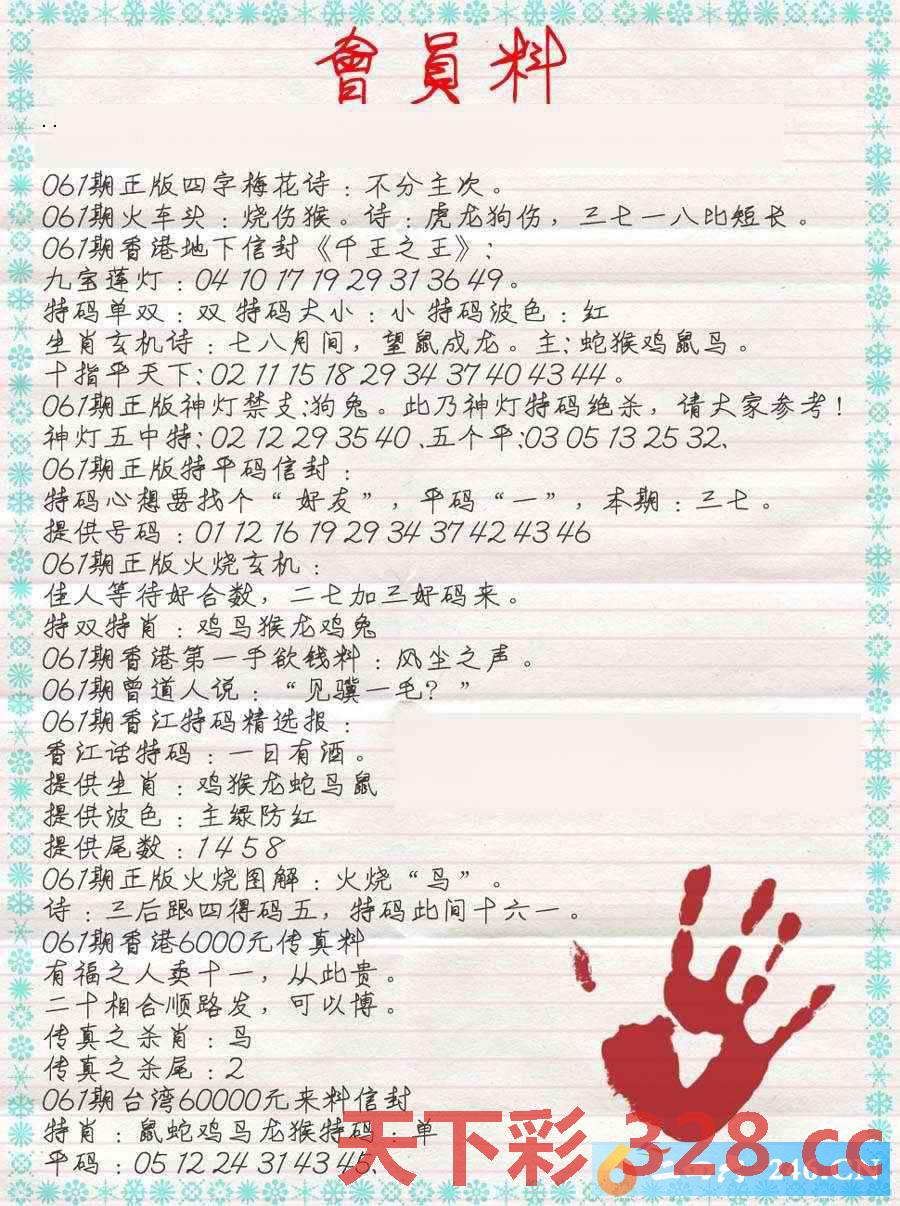 會員料
..
061期正版四字梅花诗：不分主次。
061期火车头：烧伤猴。诗：虎龙狗伤，三七一八比短长。
061期香港地下信封《千王之王》:
九宝莲灯：04 10 17 19 29 31 36 49。
特码单双：双 特码大小：小 特码波色：红
生肖玄机诗：七八月间，望鼠成龙。主:蛇猴鸡鼠马。
十指平天下:02 11 15 18 29 34 37 40 43 44。
061期正版神灯禁支:狗兔。此乃神灯特码绝杀，请大家参考!
神灯五中特:02 12 29 35 40、五个平:03 05 13 25 32、
061期正版特平码信封：
特码心想要找个“好友”，平码“一”，本期：三七。
提供号码：01 12 16 19 29 34 37 42 43 46
061期正版火烧玄机：
佳人等待好合数，二七加三好码来。
特双特肖：鸡马猴龙鸡兔
061期香港第一手欲钱料：风尘之声。
061期曾道人说：“见骥一毛？”
061期香江特码精选报：
香江话特码：一日有酒。
提供生肖：鸡猴龙蛇马鼠
提供波色：主绿防红
提供尾数：1 4 5 8
061期正版火烧图解：火烧“马”。
诗：三后跟四得码五，特码此间十六一。
061期香港6000元传真料
有福之人卖十一，从此贵。
二十相合顺路发，可以博。
传真之杀肖：马
传真之杀尾：2
061期台湾60000元来料信封
特肖：鼠蛇鸡马龙猴特码：单
平码：05 12 24 31 43 45、
天下彩 328.cc
246.CN